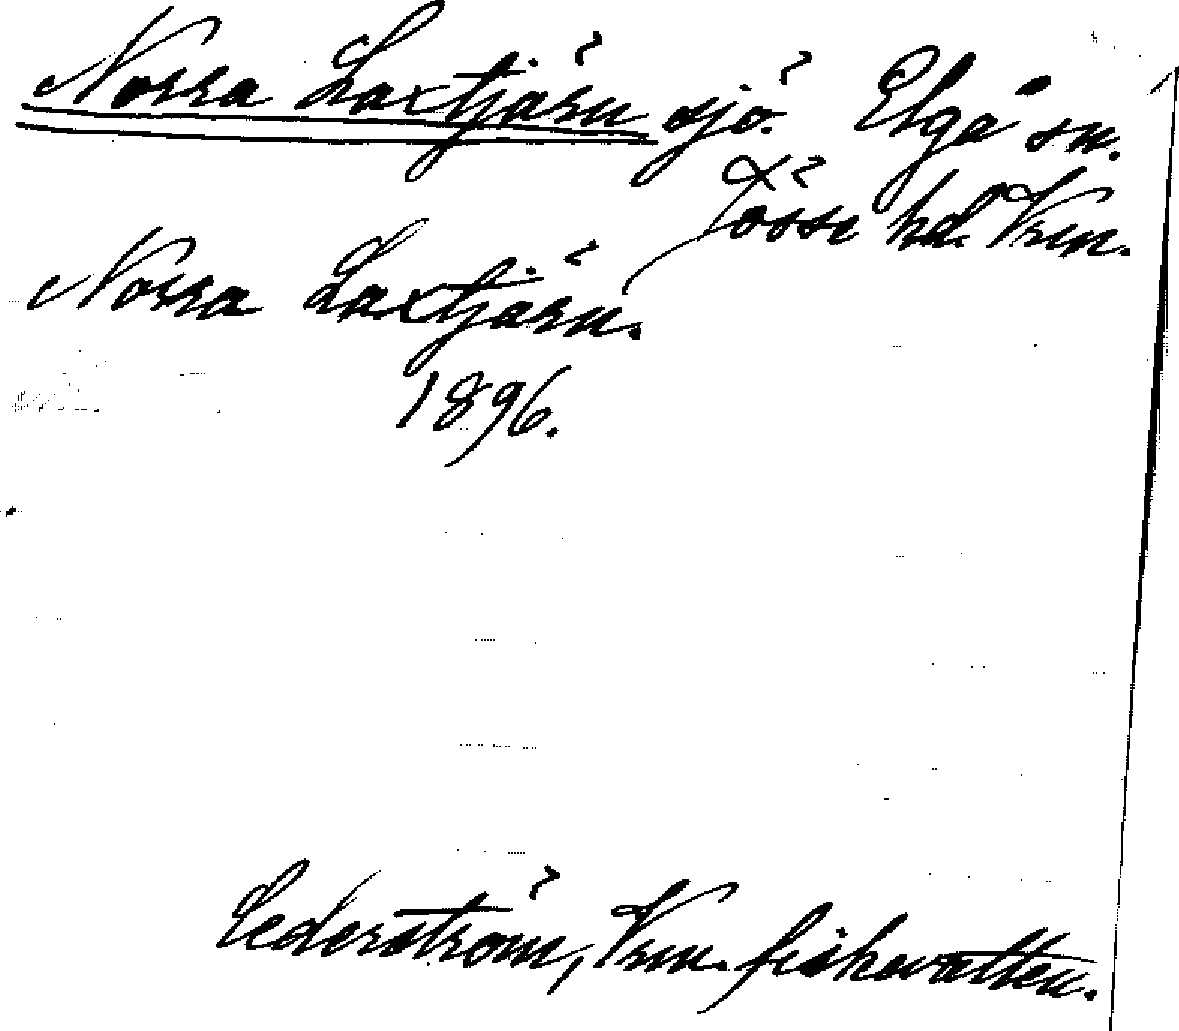 Norra Laxtjärn sjö. Elgå sn.
Jösse hd. Vrm.
Norra Laxtjärn.
1896.
Cederström, Vrm. fiskevatten.